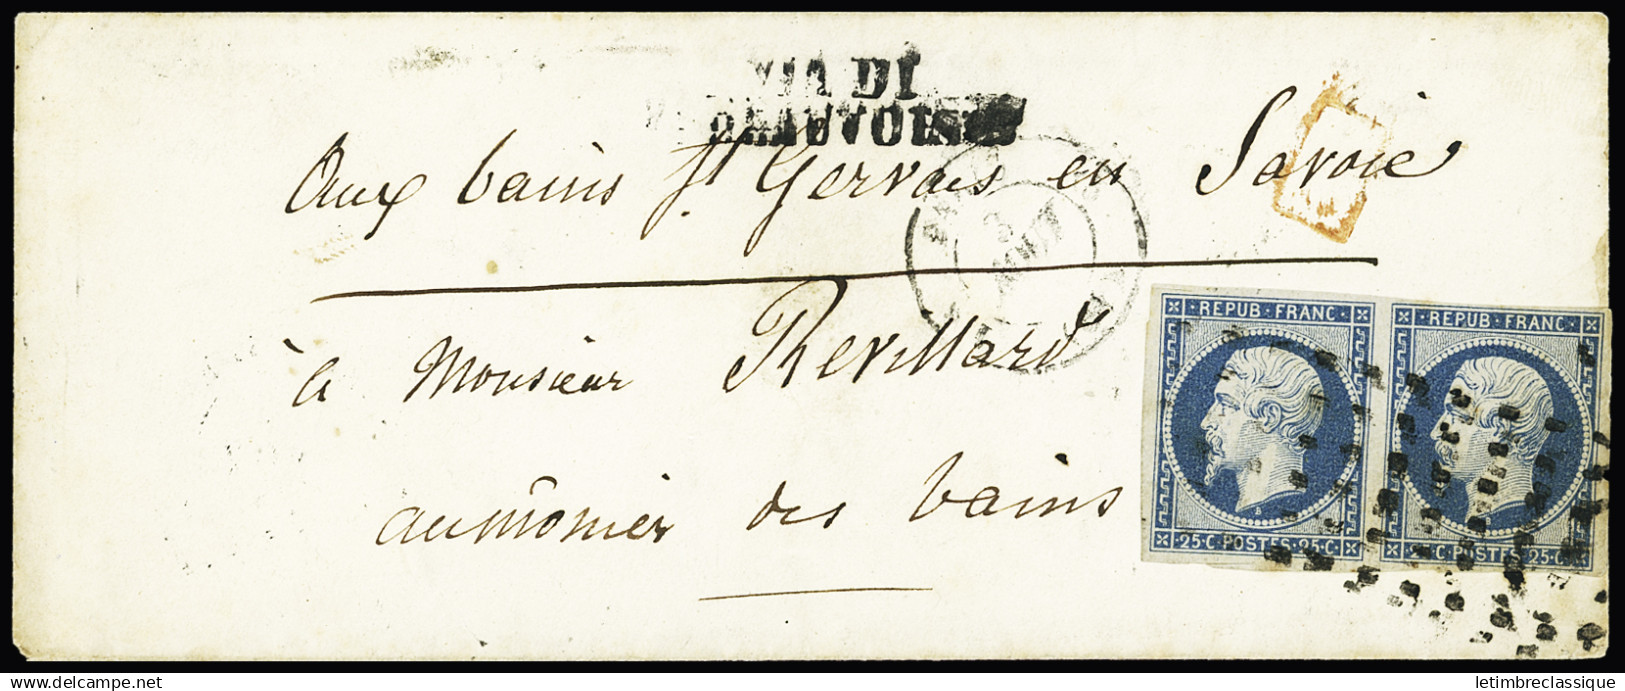 VIA DI
BEAUVOISIN
Aux bains St Gervais en Savoie
à Monsieur Revillard
aumônier des bains
REPUB·FRANC·
REPUB·FRANC·
25·C·POSTES·25·C
25·C·POSTES·25·C
B
delcampe.net
letimbreclassique